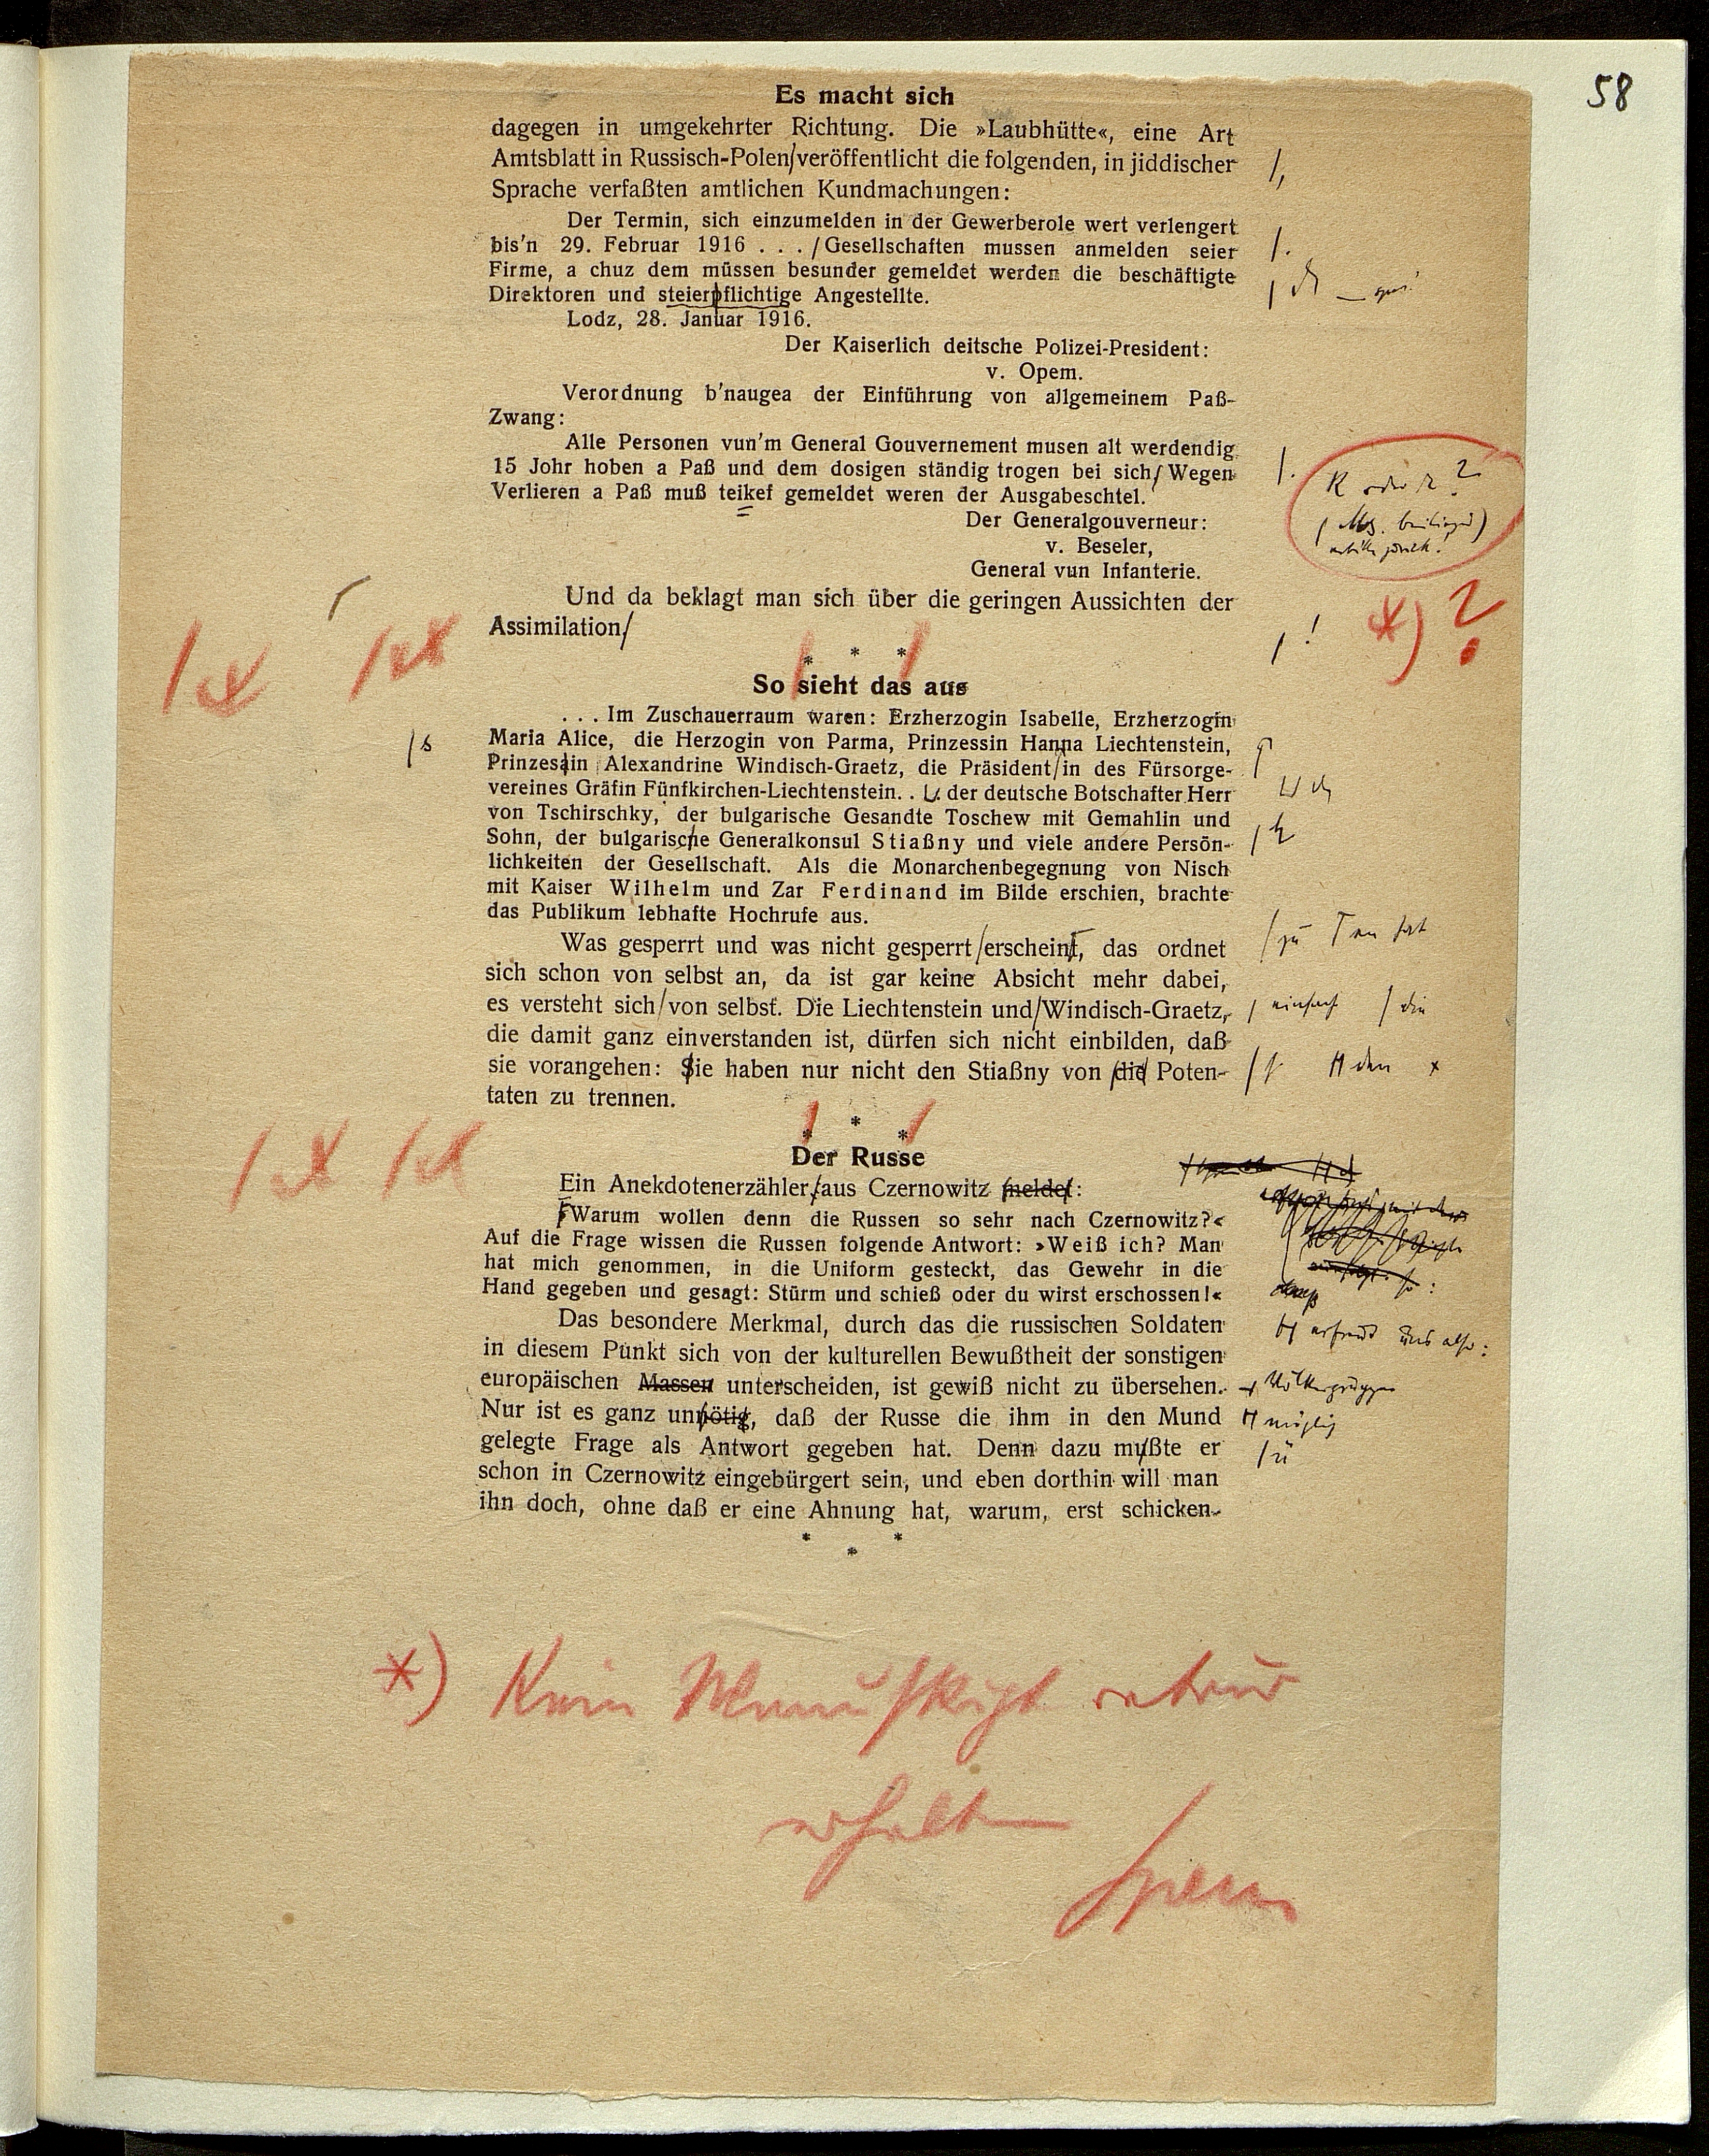 58
Es macht sich
dagegen in umgekehrter Richtung. Die »Laubhütte«, eine Art
Amtsblatt in Russisch-Polen/veröffentlicht die folgenden, in jiddischer /,
Sprache verfaßten amtlichen Kundmachungen:
Der Termin, sich einzumelden in der Gewerberole wert verlengert
bis'n 29. Februar 1916 . . . /Gesellschaften mussen anmelden seier /.
Firme, a chuz dem müssen besunder gemeldet werden die beschäftigte
Direktoren und steierpflichtige Angestellte.
Lodz, 28. Januar 1916.
Der Kaiserlich deitsche Polizei-President:
v. Opem.
Verordnung b'naugea der Einführung von allgemeinem Paß-
Zwang:
Alle Personen vun'm General Gouvernement musen alt werdendig
15 Johr hoben a Paß und dem dosigen ständig trogen bei sich/ Wegen /.
Verlieren a Paß muß teikef gemeldet weren der Ausgabeschtel.
K oder k ?
Der Generalgouverneur:
v. Beseler,
General vun Infanterie.
Und da beklagt man sich über die geringen Aussichten der
Assimilation/ / ! *) ?
* * *
So sieht das aus
. . . Im Zuschauerraum waren: Erzherzogin Isabelle, Erzherzogin
Maria Alice, die Herzogin von Parma, Prinzessin Hanna Liechtenstein,
/s Prinzessin Alexandrine Windisch-Graetz, die Präsident/in des Fürsorge-
vereines Gräfin Fünfkirchen-Liechtenstein. . . der deutsche Botschafter Herr
von Tschirschky, der bulgarische Gesandte Toschew mit Gemahlin und
Sohn, der bulgarische Generalkonsul Stiaßny und viele andere Persön- /h
lichkeiten der Gesellschaft. Als die Monarchenbegegnung von Nisch
mit Kaiser Wilhelm und Zar Ferdinand im Bilde erschien, brachte
das Publikum lebhafte Hochrufe aus.
Was gesperrt und was nicht gesperrt/erscheint, das ordnet /zu
sich schon von selbst an, da ist gar keine Absicht mehr dabei,
es versteht sich/von selbst. Die Liechtenstein und/Windisch-Graetz, / einfach / die
die damit ganz einverstanden ist, dürfen sich nicht einbilden, daß
sie vorangehen: Sie haben nur nicht den Stiaßny von die Poten- /s H den x
taten zu trennen.
* * *
Der Russe
Ein Anekdotenerzähler/aus Czernowitz meldet:
»Warum wollen denn die Russen so sehr nach Czernowitz?«
Auf die Frage wissen die Russen folgende Antwort: »Weiß ich? Man
hat mich genommen, in die Uniform gesteckt, das Gewehr in die
Hand gegeben und gesagt: Stürm und schieß oder du wirst erschossen!«
H erfreut uns also:
Das besondere Merkmal, durch das die russischen Soldaten
in diesem Punkt sich von der kulturellen Bewußtheit der sonstigen
europäischen Massen unterscheiden, ist gewiß nicht zu übersehen. Völkergruppen
Nur ist es ganz unnötig, daß der Russe die ihm in den Mund H möglich
gelegte Frage als Antwort gegeben hat. Denn dazu mußte er /ü
schon in Czernowitz eingebürgert sein, und eben dorthin will man
ihn doch, ohne daß er eine Ahnung hat, warum, erst schicken.
* * *
*) Kein Manuskript retour
erhalten